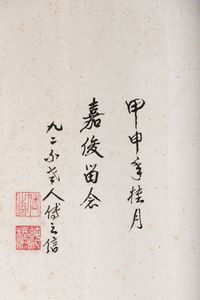 甲申年桂月
嘉俊留念
九二不老人傅之信